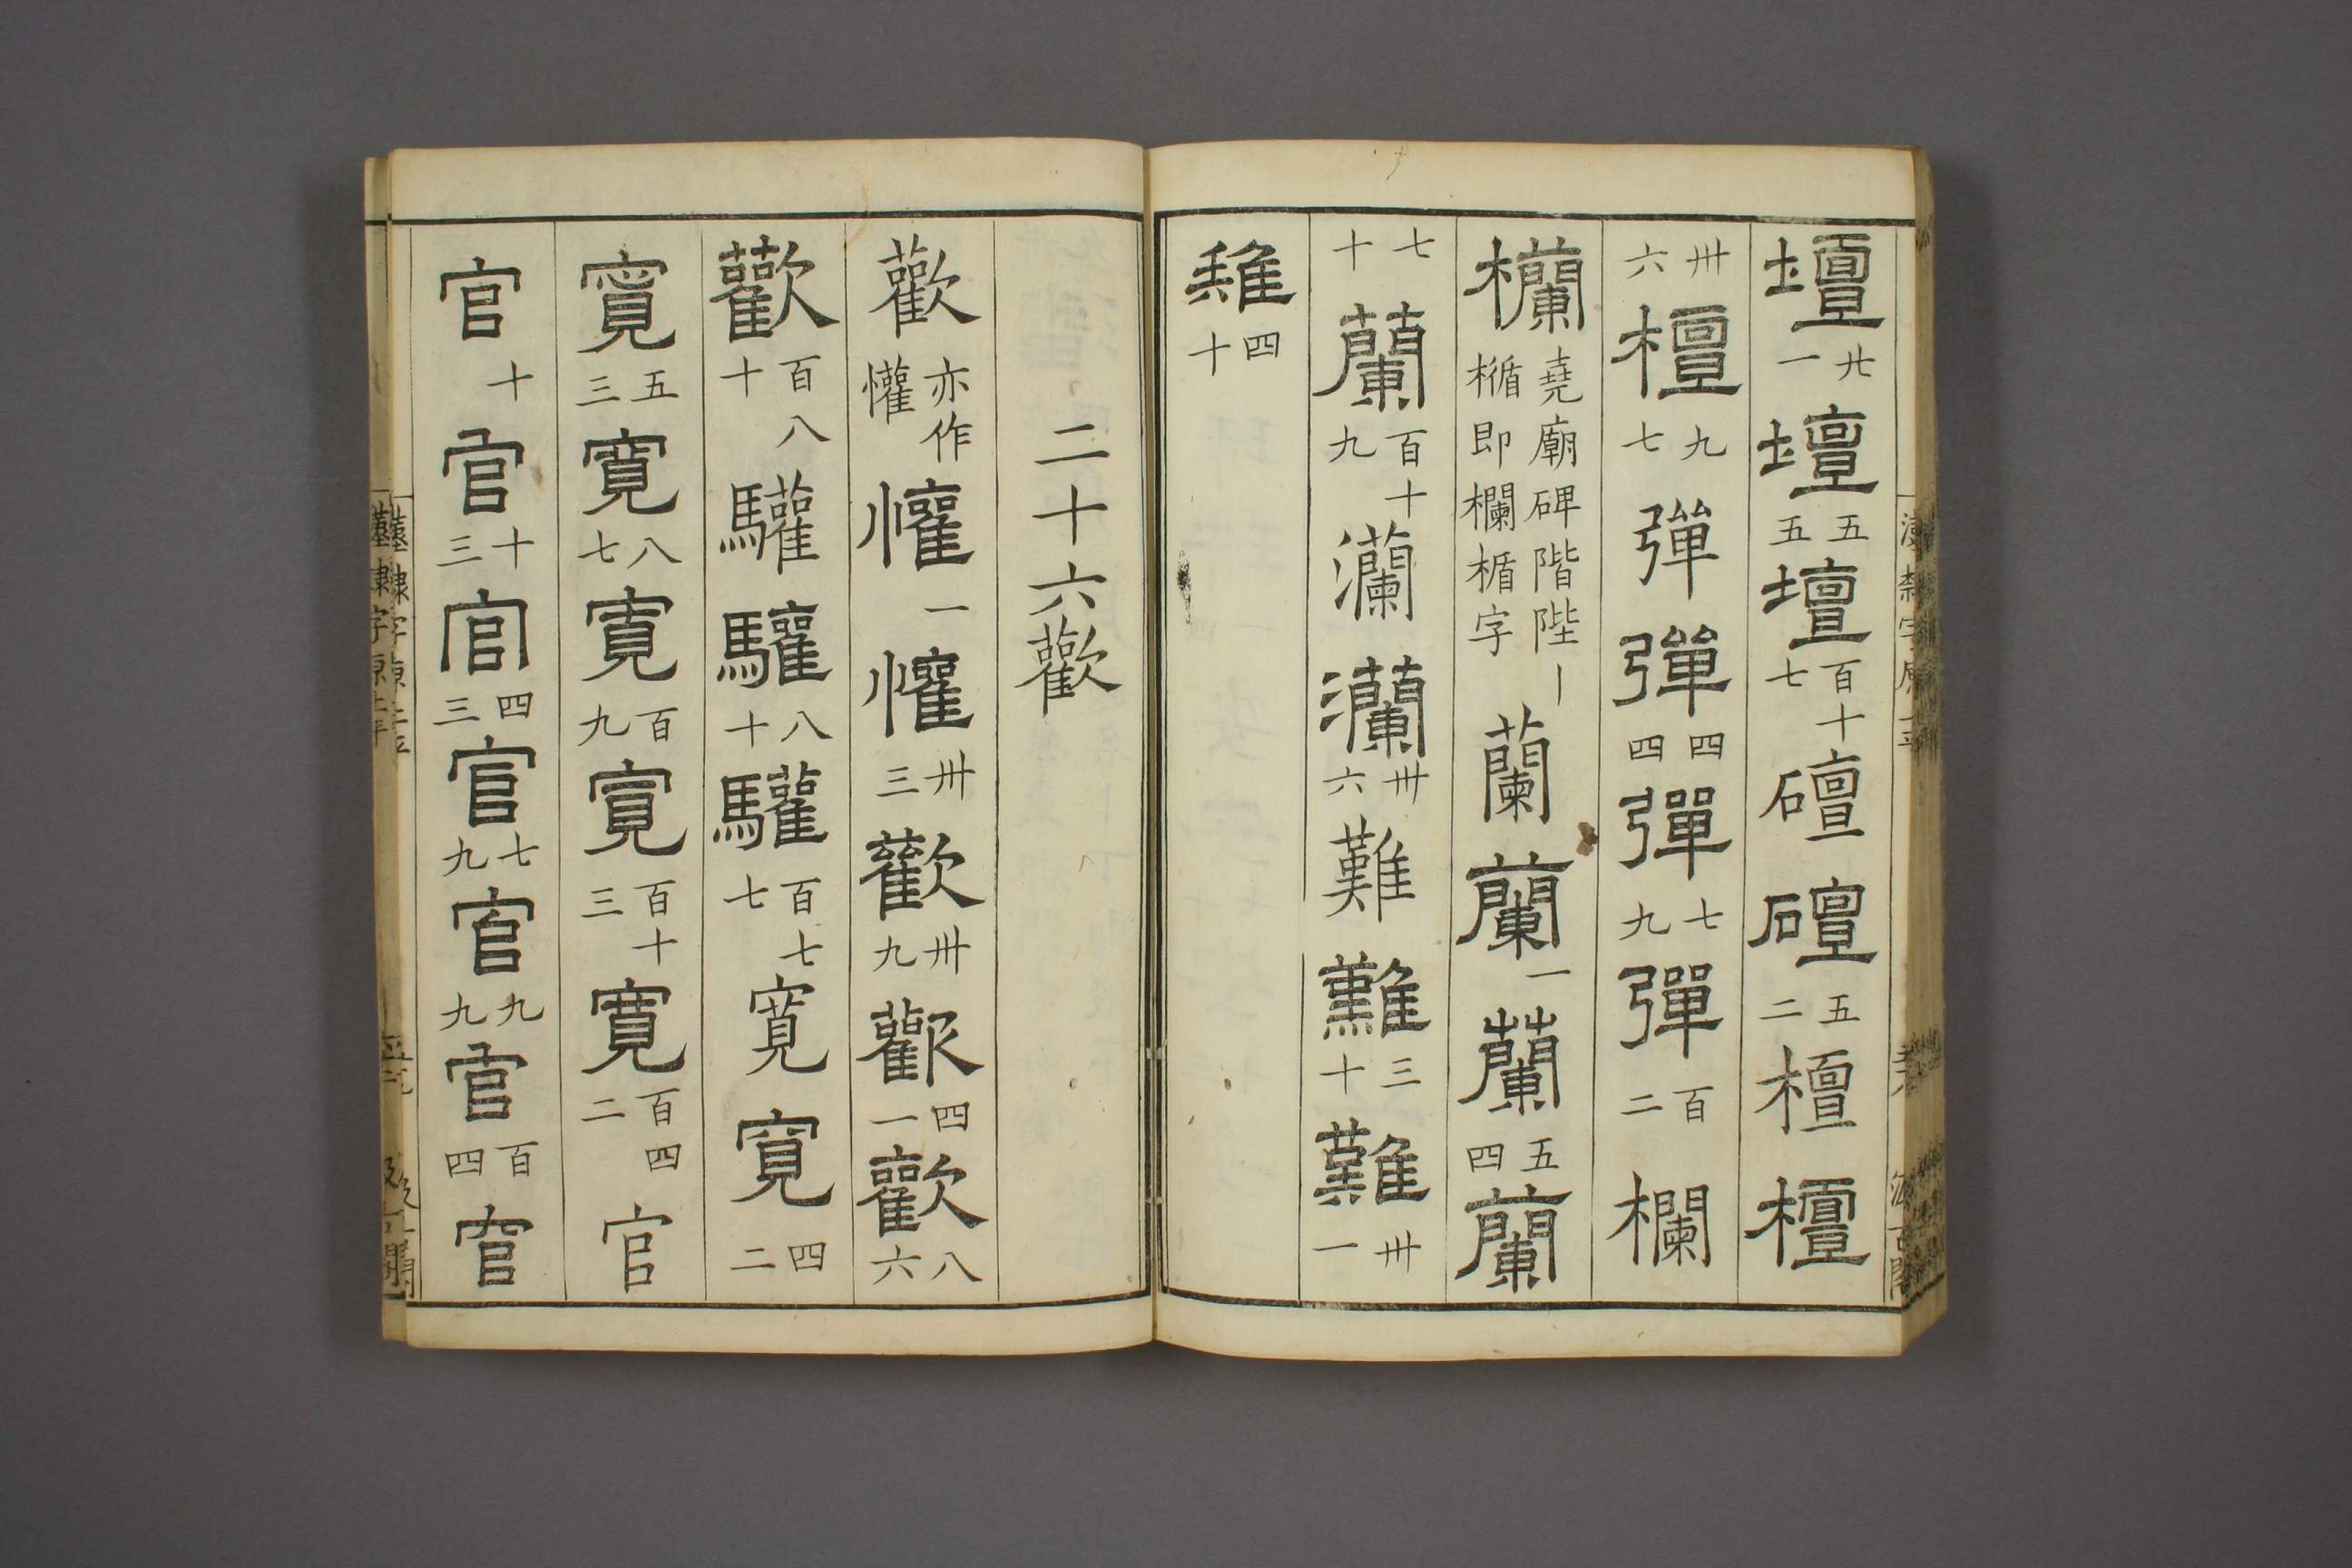 壇廿一壇五五壇百十七䃪䃪五二檀檀
卅六檀九七彈彈四四彈七九彈百二欄
欄堯廟碑階陛丨楯即欄楯字蘭蘭一蘭五四蘭
七十蘭百十九瀾瀾卅六難難三十難卅一
難四十
二十六歡
歡亦作懽懽一懽卅三歡卅九歡四一歡八六
歡百八十驩驩八十驩百七七寬寬四二
寬五三寬八七寬百九寬百十三寬百四二官
官十官十三官四三官七九官九九官百四官
漢隸字原上平
汲古閣